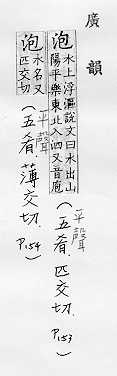 廣韻
泡
水上浮漚說文曰水出山
陽平樂東北入泗又音庖
(平聲 五肴.匹交切.P153)
泡
水名又
匹交切
(平聲 五肴.薄交切.P154)